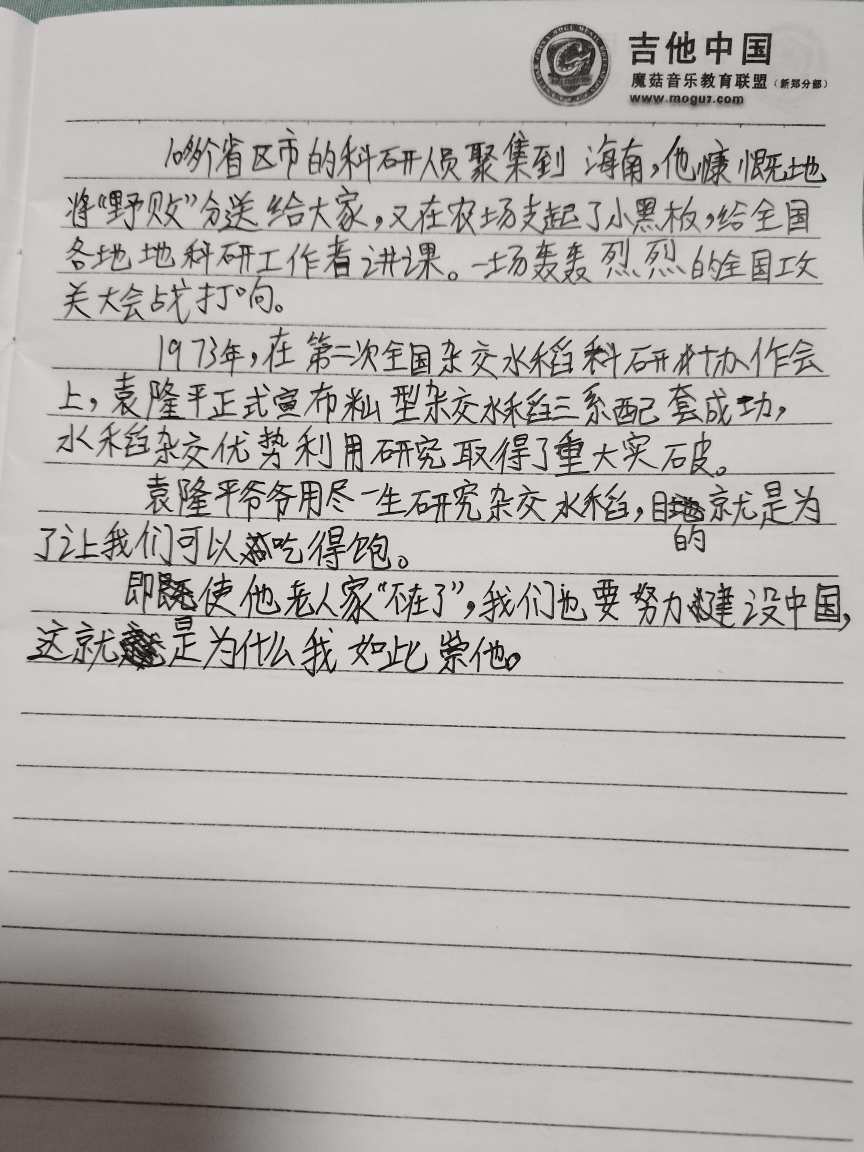 吉他中国
魔菇音乐教育联盟（新郑分部）
www.moguz.com
10多个省区市的科研人员聚集到海南，他慷慨地
将“野败”分送给大家，又在农场支起了小黑板，给全国
各地地科研工作者讲课。一场轰轰烈烈的全国攻
关大会战打响。
1973年，在第二次全国杂交水稻科研协作会
上，袁隆平正式宣布籼型杂交水稻三系配套成功，
水稻杂交优势利用研究取得了重大突破。
袁隆平爷爷用尽一生研究杂交水稻，目的就是为
了让我们可以吃得饱。
即使他老人家“不在了”，我们也要努力建设中国，
这就是为什么我如此崇他。